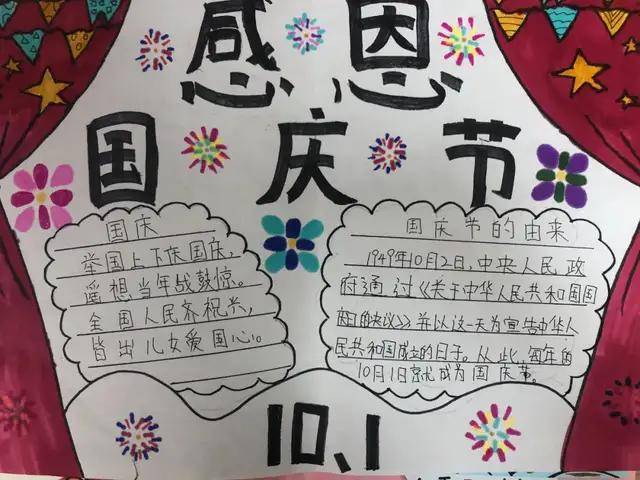 感恩
国庆节
国庆
举国上下庆国庆，
遥想当年战鼓惊。
全国人民齐祝兴，
皆出儿女爱国心。
国庆节的由来
1949年10月2日，中央人民政
府通过《关于中华人民共和国国
庆日的决议》并以这一天为宣告中华人
民共和国成立的日子。从此，每年的
10月1日就成为国庆节。
10、1